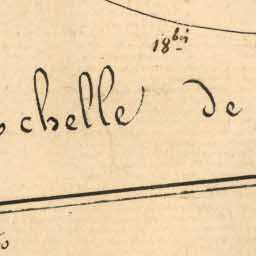 18 bis
ochelle de